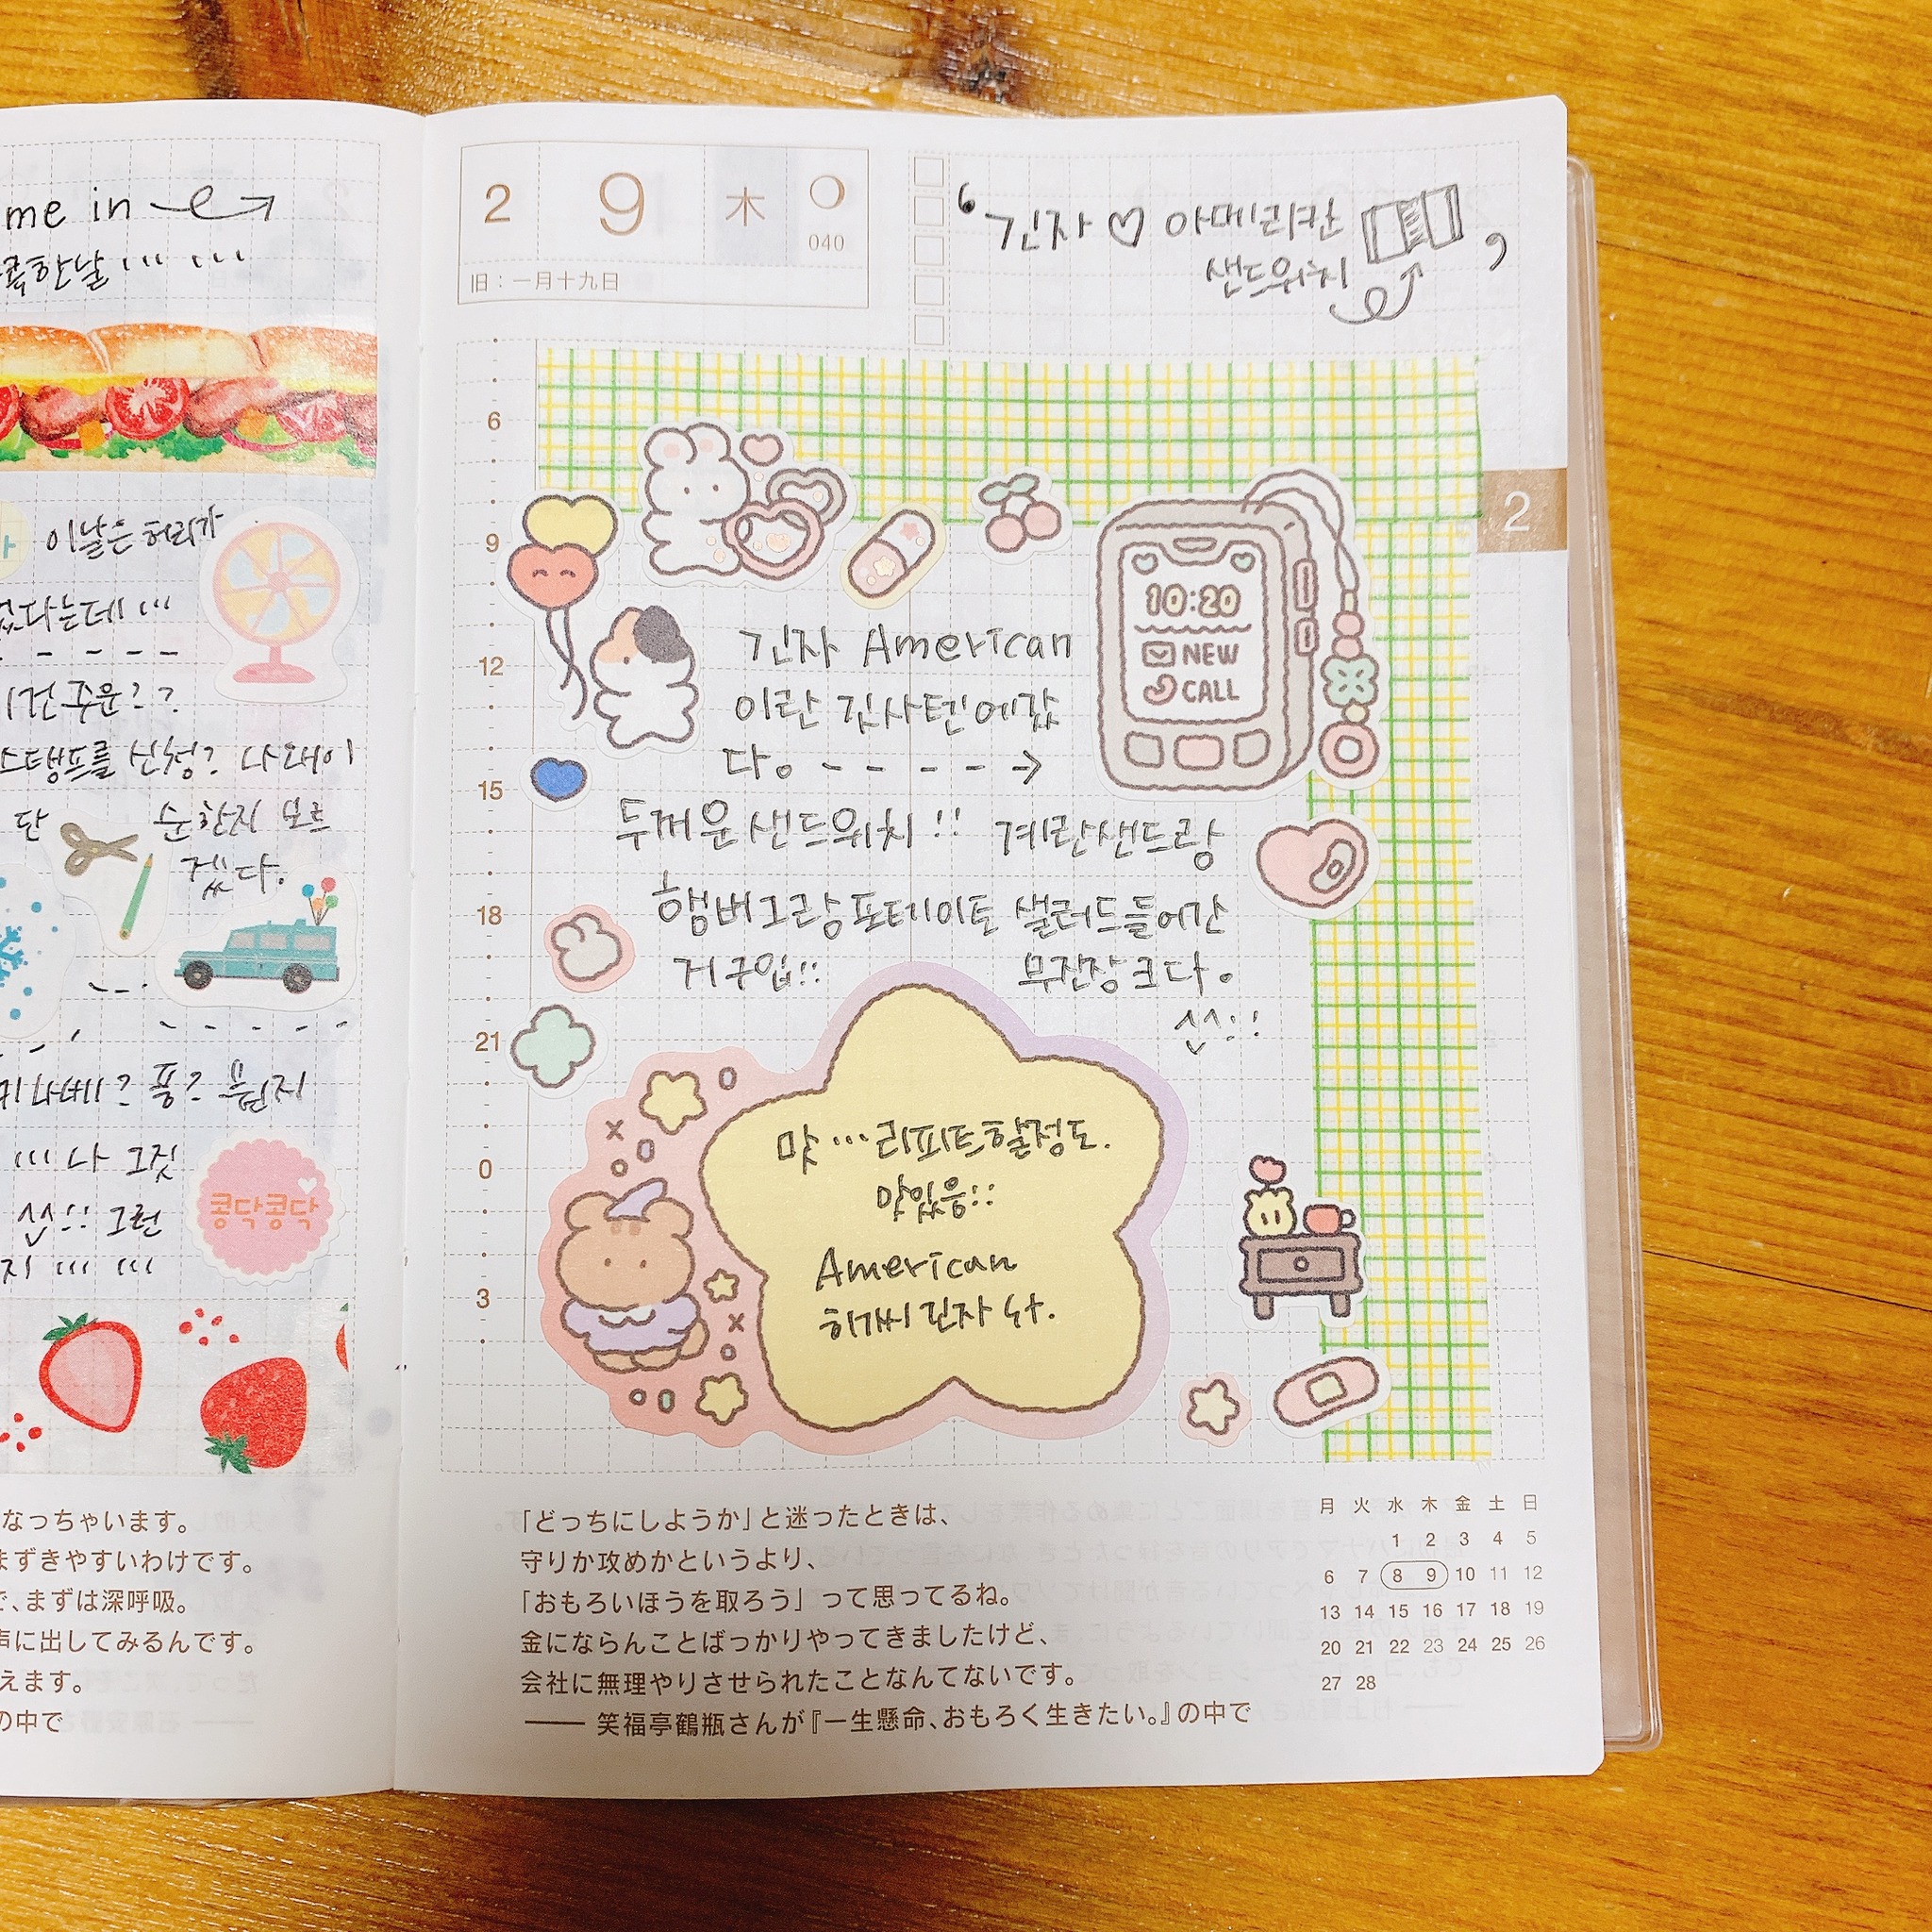 me in
한날 ... ...
이날은 허리가
없다는데 ...
이건 주운??
스탬프를 신청? 나왜이
단 순한지 모르
겠다.
풍?
... 나 그짓
그런
지 ... ...
콩닥콩닥
なっちゃいます。
まずきやすいわけです。
で、まずは深呼吸。
声に出してみるんです。
えます。
の中で
2 9 木
040
旧：一月十九日
‘긴자 ♡ 아메리칸
샌드위치’
2
6
9
12
15
18
21
0
3
10:20
NEW
CALL
긴자 American
이란 깃사텐에갔
다。 - - - - - →
두꺼운샌드위치 !! 계란샌드랑
햄버그랑포테이토 샐러드들어간
거 구입:: 무진장크다。
맛 ... 리피트할정도.
맛있음::
American
히가시긴자 수.
「どっちにしようか」と迷ったときは、
守りか攻めかというより、
「おもろいほうを取ろう」って思ってるね。
金にならんことばっかりやってきましたけど、
会社に無理やりさせられたことなんてないです。
—— 笑福亭鶴瓶さんが『一生懸命、おもろく生きたい。』の中で
月 火 水 木 金 土 日
1 2 3 4 5
6 7 8 9 10 11 12
13 14 15 16 17 18 19
20 21 22 23 24 25 26
27 28